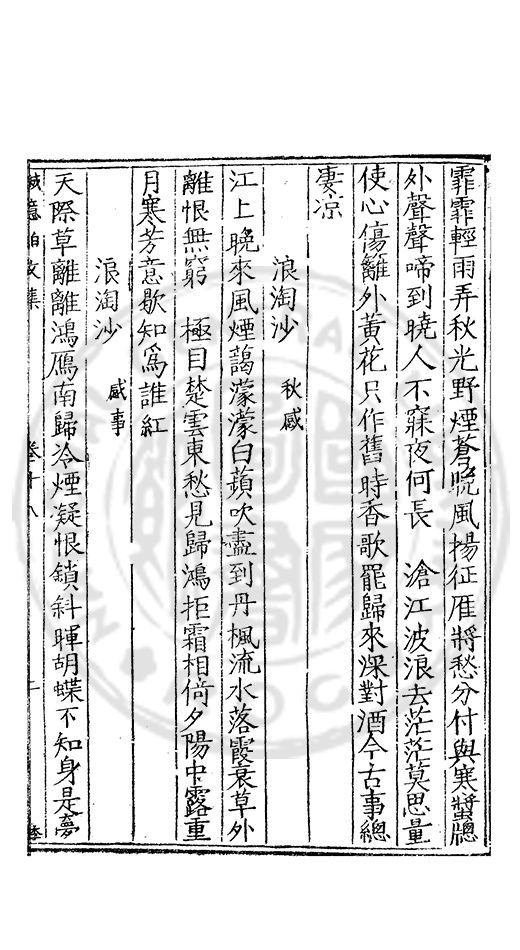 霏霏輕雨弄秋光野煙蒼晚風揚征雁將愁分付與寒螿牕
外聲聲啼到曉人不寐夜何長　滄江波浪去茫茫莫思量
使心傷籬外黃花只作舊時香歌罷歸來深對酒今古事總
凄凉
浪淘沙　秋感
江上晚來風煙藹濛濛白蘋吹盡到丹楓流水落霞衰草外
離恨無窮　極目楚雲東愁見歸鴻拒霜相倚夕陽中露重
月寒芳意歇知爲誰紅
浪淘沙　感事
天際草離離鴻鴈南歸冷煙凝恨鎖斜暉胡蝶不知身是夢
誠意伯文集　卷十八